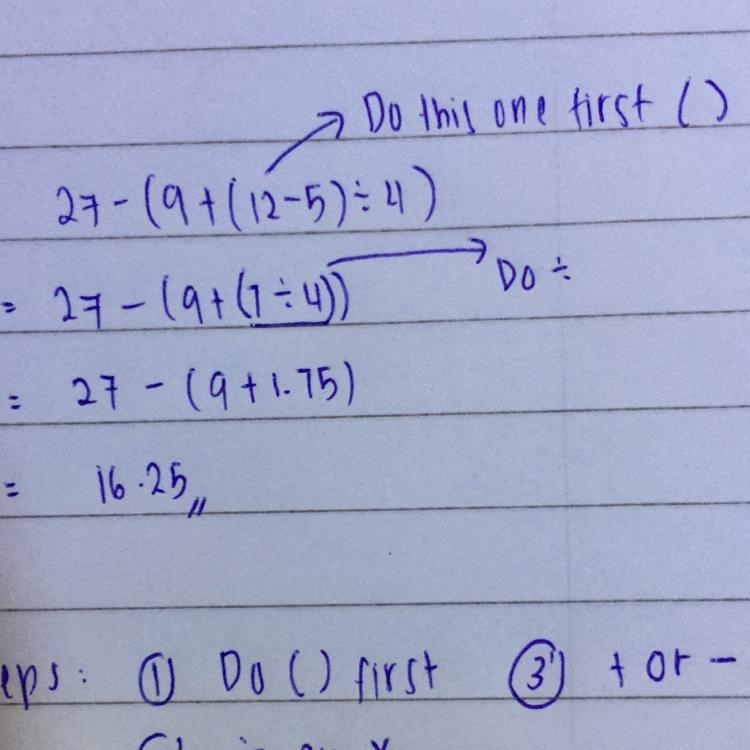 Do this one first ( )
27 - (9 + (12 - 5) ÷ 4)
= 27 - (9 + (7 ÷ 4))
Do ÷
= 27 - (9 + 1.75)
= 16.25
eps: ① Do ( ) first ③ + or -